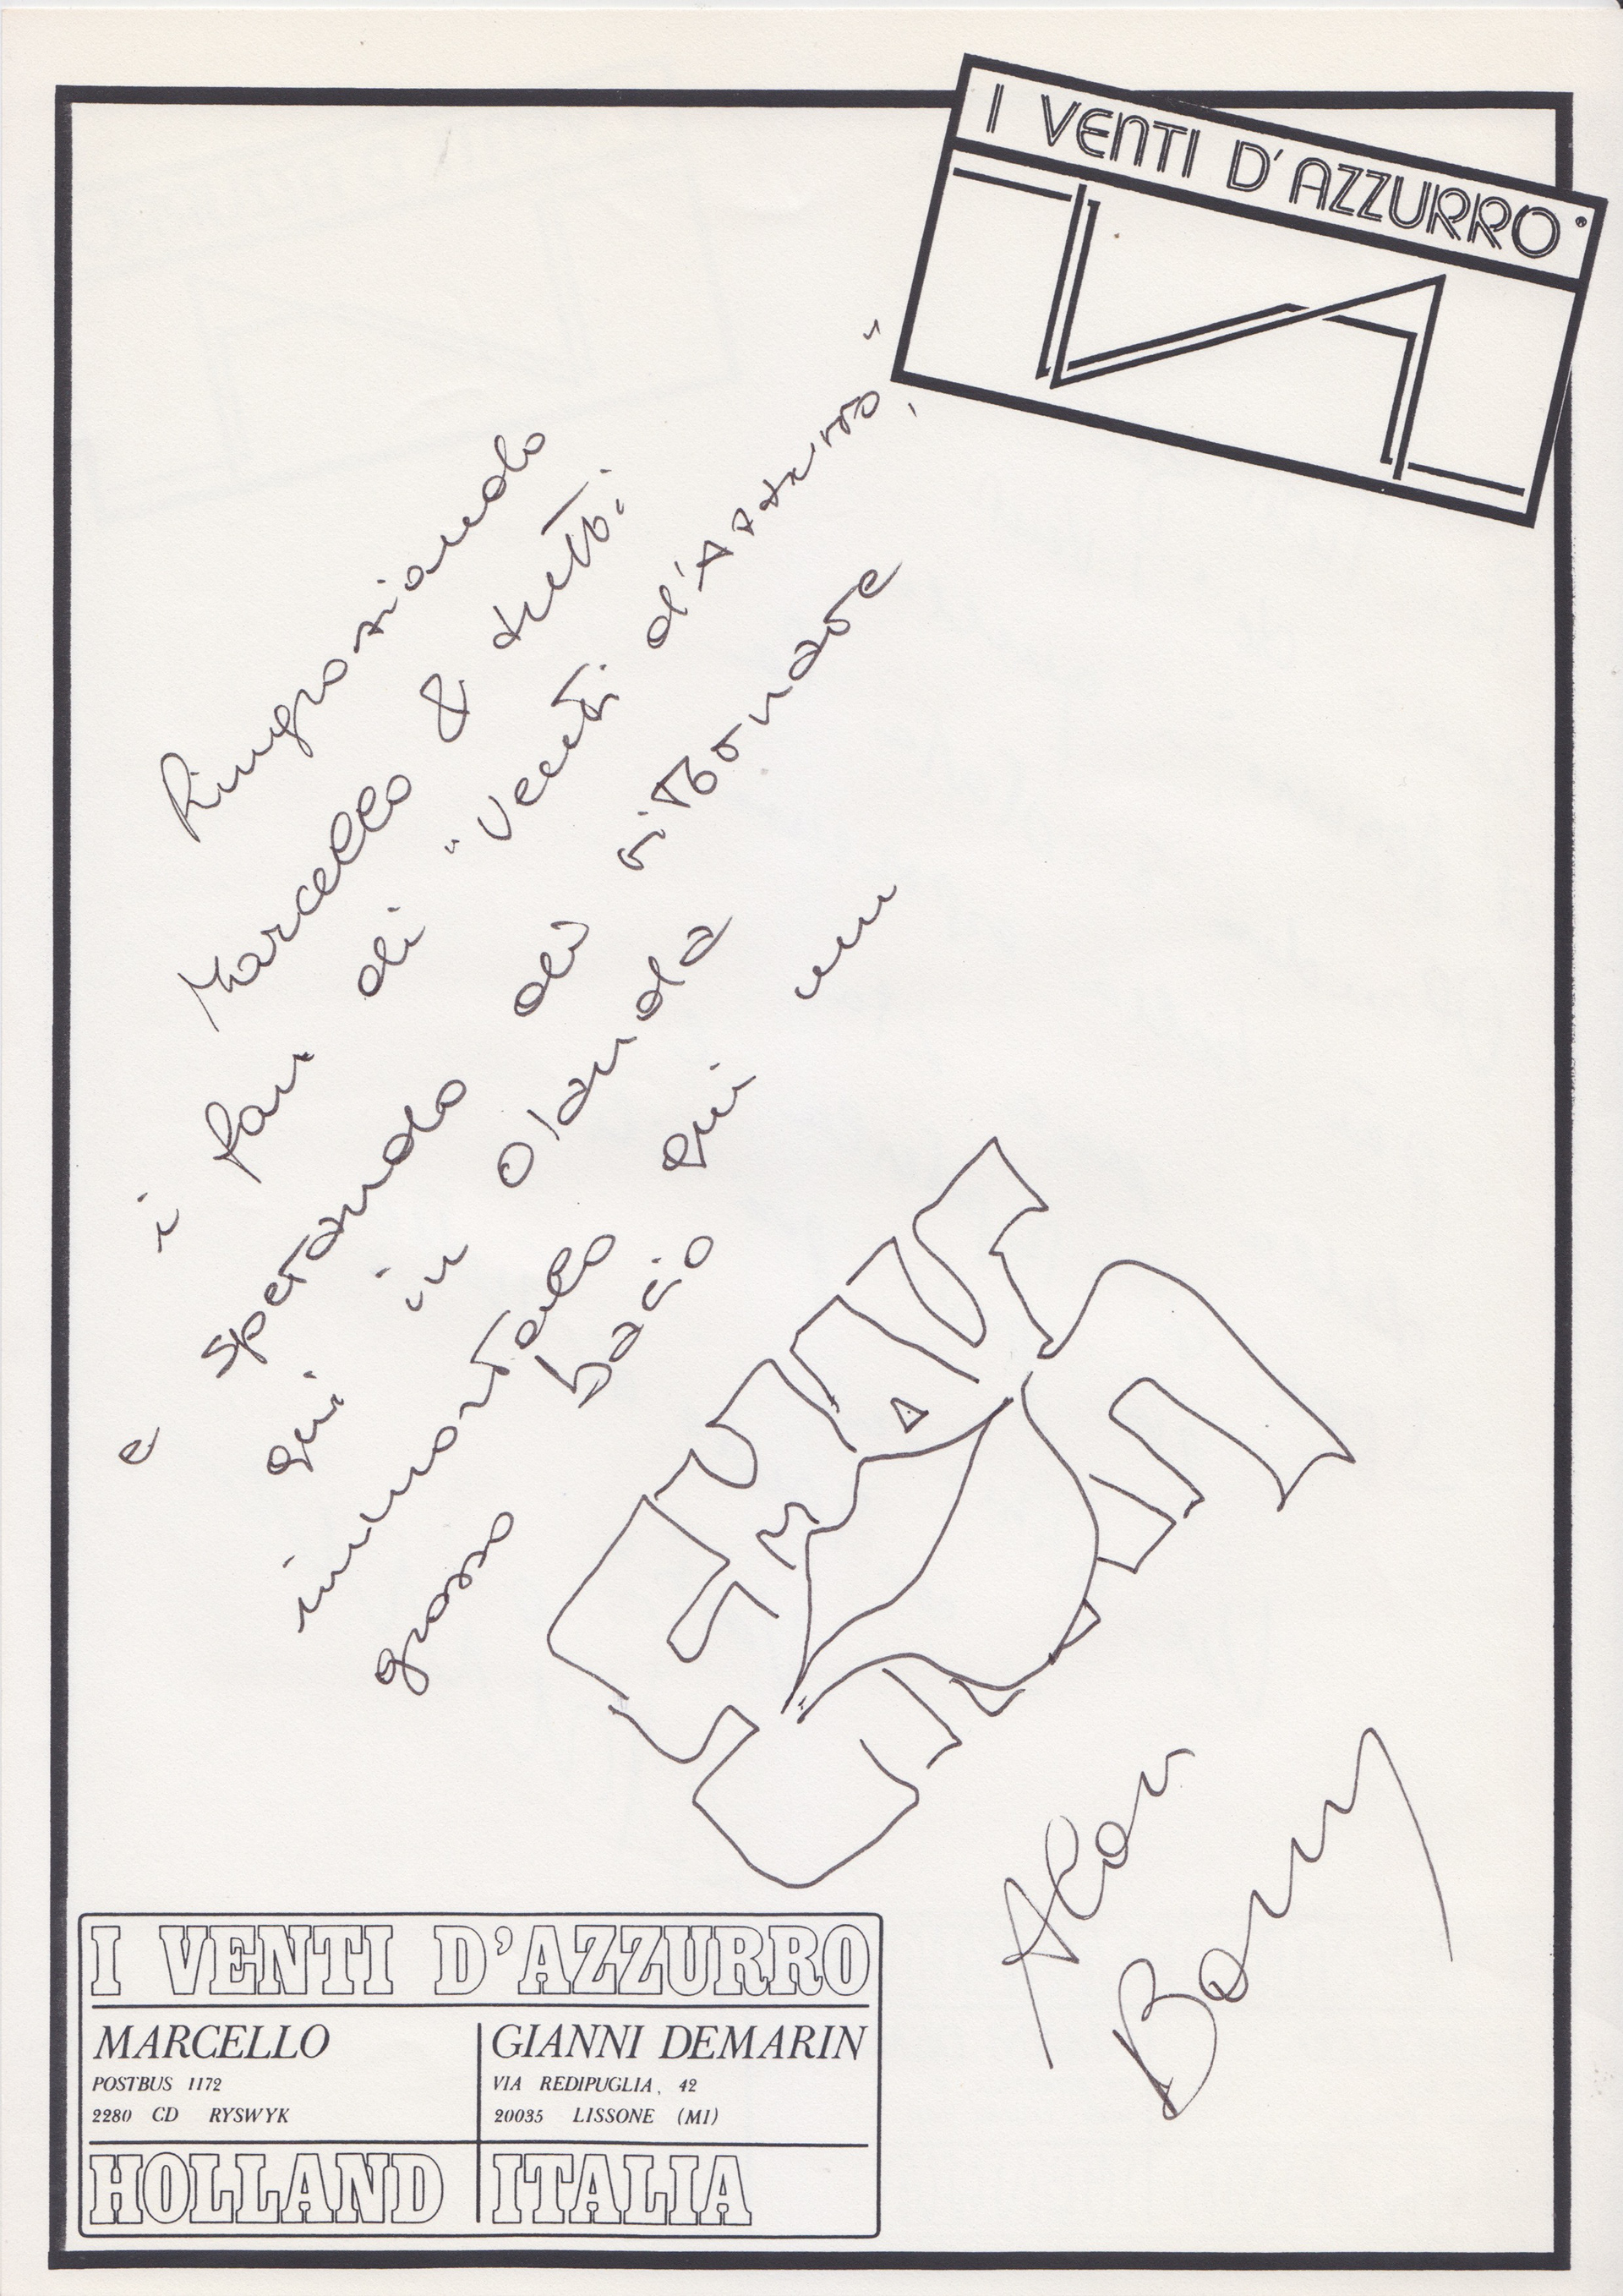 I VENTI D'AZZURRO
Ringraziando
Marcello & tutti
i fan di "Venti d'Azzurro,"
e sperando di ritornare
qui in Olanda
immortalo qui un
grosso bacio
Alan
Barry
I VENTI D'AZZURRO
MARCELLO
POSTBUS 1172
2280 CD RYSWYK
HOLLAND
GIANNI DEMARIN
VIA REDIPUGLIA, 42
20035 LISSONE (MI)
ITALIA